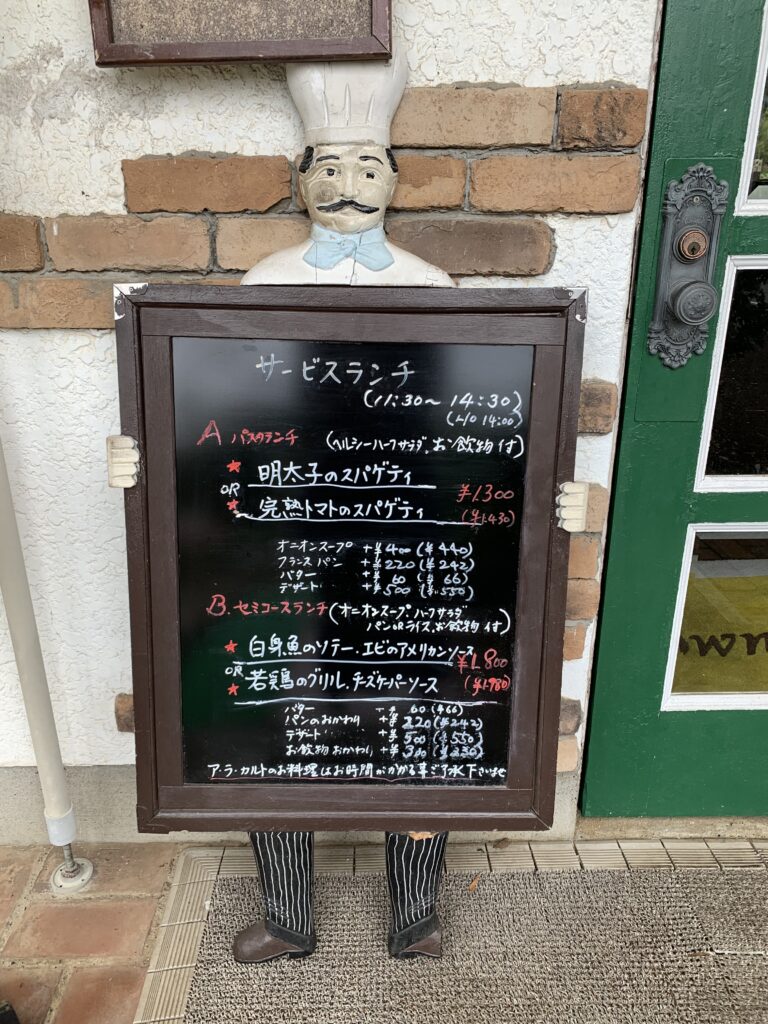 サービスランチ
(11:30〜14:30)
(L/O 14:00)
A パスタランチ (ヘルシーハーフサラダ、お飲物付)
★ 明太子のスパゲティ
OR ¥1300
★ 完熟トマトのスパゲティ (¥1.430)
オニオンスープ +¥400 (¥440)
フランスパン +¥220 (¥242)
バター +¥60 (¥66)
デザート +¥500 (¥550)
B. セミコースランチ (オニオンスープ、ハーフサラダ
パンORライス、お飲物付)
★ 白身魚のソテー、エビのアメリカンソース
OR ¥1.800
★ 若鶏のグリル、チーズケーパーソース (¥1.980)
バター +¥60 (¥66)
パンのおかわり +¥220 (¥242)
デザート +¥500 (¥550)
お飲物おかわり +¥300 (¥330)
ア・ラ・カルトのお料理はお時間がかかる事ご了承下さいませ
own